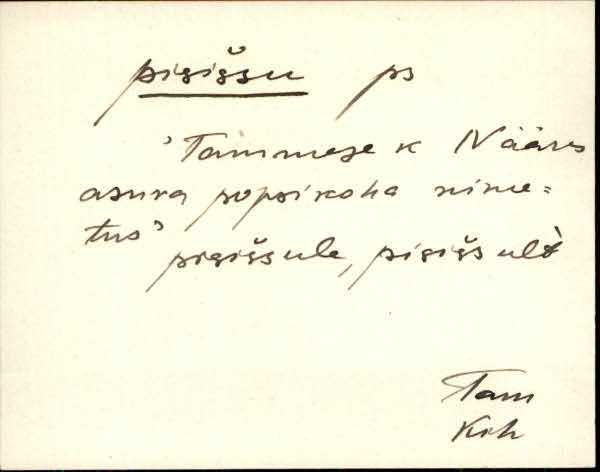 pisišsu ps
'Tammese k Nääres
asuva popsikoha nime=
tus'
pisišsule, pisišsult
Tam
Krh